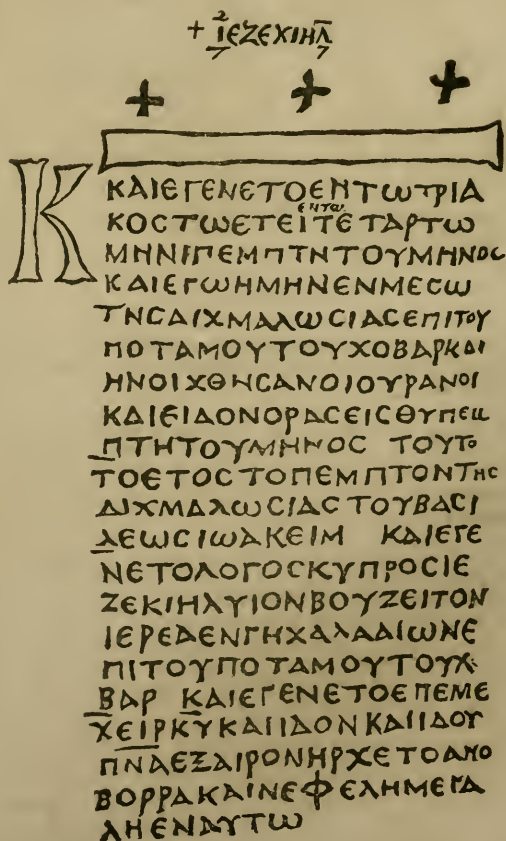 + ΙΕΖΕΚΙΗΛ
Κ
ΚΑΙΕΓΕΝΕΤΟΕΝΤΩΤΡΙΑ
ΕΝΤΩ
ΚΟCΤΩΕΤΕΙΤΕΤΑΡΤΩ
ΜΗΝΙΠΕΜΠΤΗΤΟΥΜΗΝΟC
ΚΑΙΕΓΩΗΜΗΝΕΝΜΕCΩ
ΤΗCΑΙΧΜΑΛΩCΙΑCΕΠΙΤΟΥ
ΠΟΤΑΜΟΥΤΟΥΧΟΒΑΡΚΑΙ
ΗΝΟΙΧΘΗCΑΝΟΙΟΥΡΑΝΟΙ
ΚΑΙΕΙΔΟΝΟΡΑCΕΙCΘΥΠΕΜ
ΠΤΗΤΟΥΜΗΝΟC ΤΟΥΤΟ
ΤΟΕΤΟCΤΟΠΕΜΠΤΟΝΤΗC
ΑΙΧΜΑΛΩCΙΑCΤΟΥΒΑCΙ
ΛΕΩCΙΩΑΚΕΙΜ ΚΑΙΕΓΕ
ΝΕΤΟΛΟΓΟCΚΥΠΡΟCΙΕ
ΖΕΚΙΗΛΥΙΟΝΒΟΥΖΕΙΤΟΝ
ΙΕΡΕΑΕΝΓΗΧΑΛΔΑΙΩΝΕ
ΠΙΤΟΥΠΟΤΑΜΟΥΤΟΥΧΟ
ΒΑΡ ΚΑΙΕΓΕΝΕΤΟΕΠΕΜΕ
ΧΕΙΡΚΥΚΑΙΙΔΟΝΚΑΙΙΔΟΥ
ΠΝΑΕΞΑΙΡΟΝΗΡΧΕΤΟΑΠΟ
ΒΟΡΡΑΚΑΙΝΕΦΕΛΗΜΕΓΑ
ΛΗΕΝΑΥΤΩ